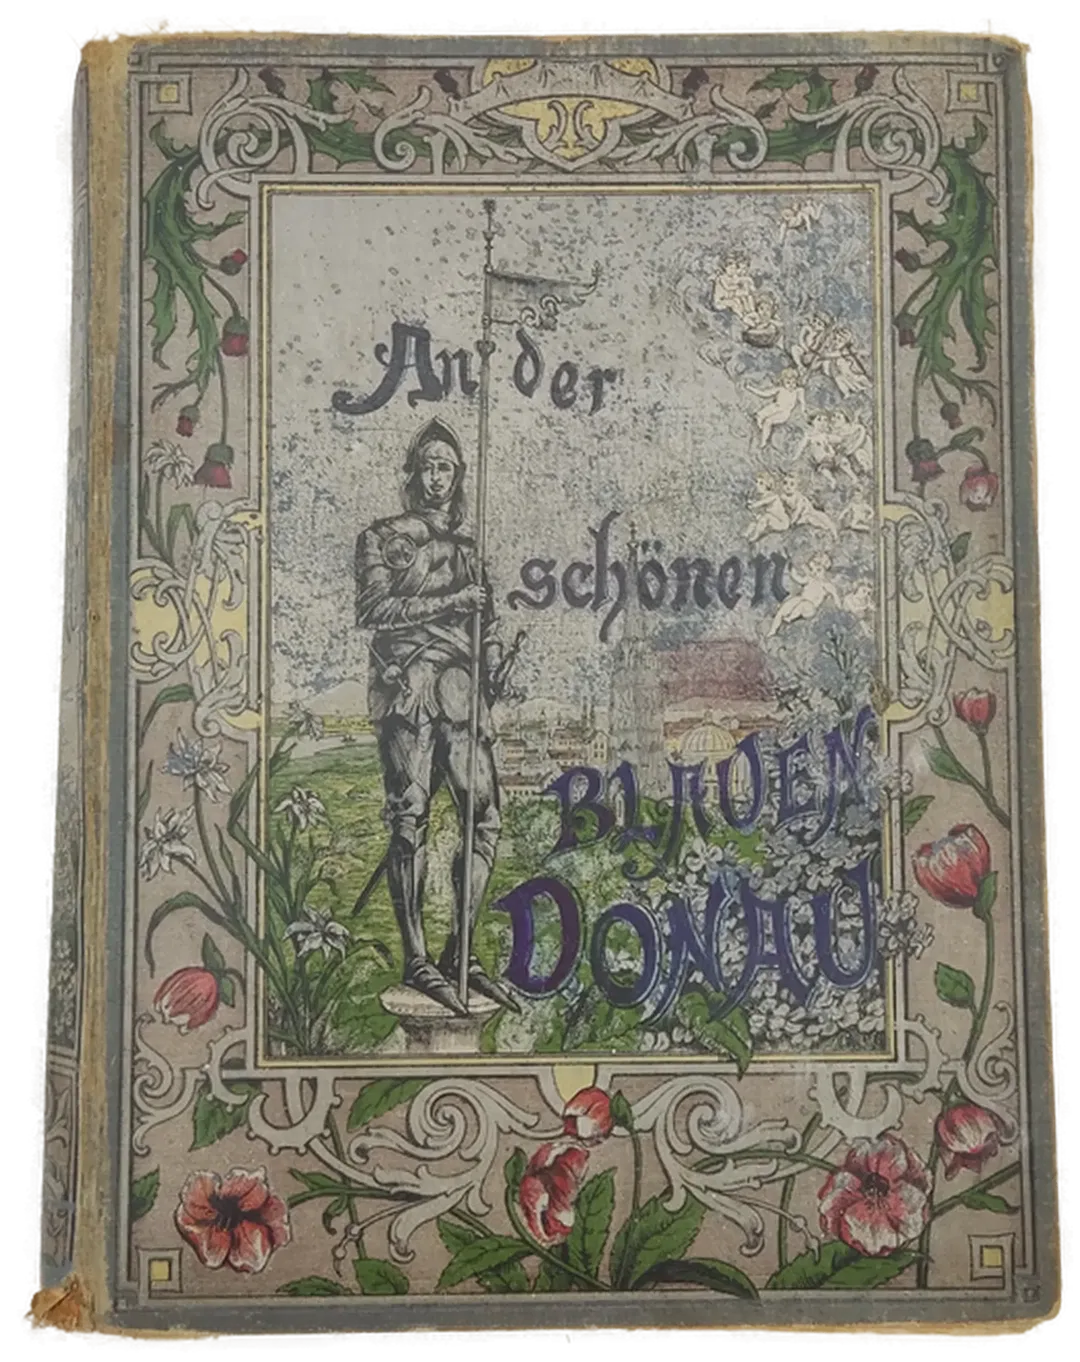 An der
schönen
BLAUEN
DONAU